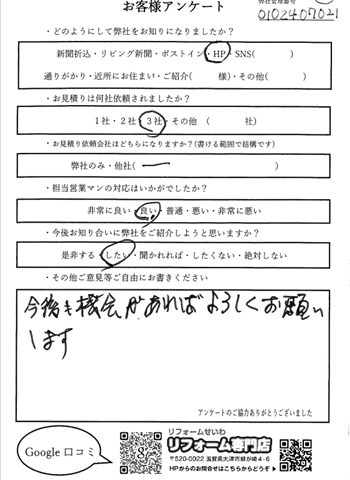 お客様アンケート
弊社管理番号
0102407021
・どのようにして弊社をお知りになりましたか？
新聞折込・リビング新聞・ポストイン・HP・SNS(　　　)
通りがかり・近所にお住まい・ご紹介(　　　様)・その他(　　　)
・お見積りは何社依頼されましたか？
1社・2社・3社・その他 (　　　社)
・お見積り依頼会社はどちらになりますか？(書ける範囲で結構です)
弊社のみ・他社(　ー　)
・担当営業マンの対応はいかがでしたか？
非常に良い・良い・普通・悪い・非常に悪い
・今後お知り合いに弊社をご紹介しようと思いますか？
是非する・したい・聞かれれば・したくない・絶対しない
・その他ご意見等ご自由にお書きください
今後も機会があればよろしくお願い
します
アンケートのご協力ありがとうございました
Google 口コミ
リフォームせいわ
リフォーム専門店
〒520-0022 滋賀県大津市柳が崎4-6
HPからのお問合せはこちらからどうぞ